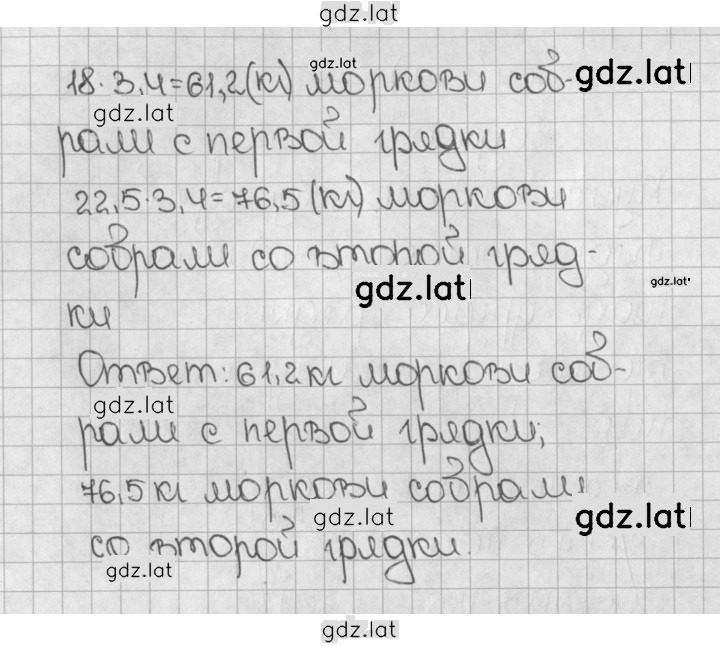 gdz.lat
gdz.lat
18·3,4=61,2(кг) моркови соб- gdz.lat
gdz.lat
рали с первой грядки
22,5·3,4=76,5(кг) моркови
собрали со второй гряд-
gdz.lat gdz.lat
ки
Ответ: 61,2 кг моркови соб-
gdz.lat
рали с первой грядки;
76,5 кг моркови собрали
gdz.lat gdz.lat
со второй грядки.
gdz.lat
gdz.lat